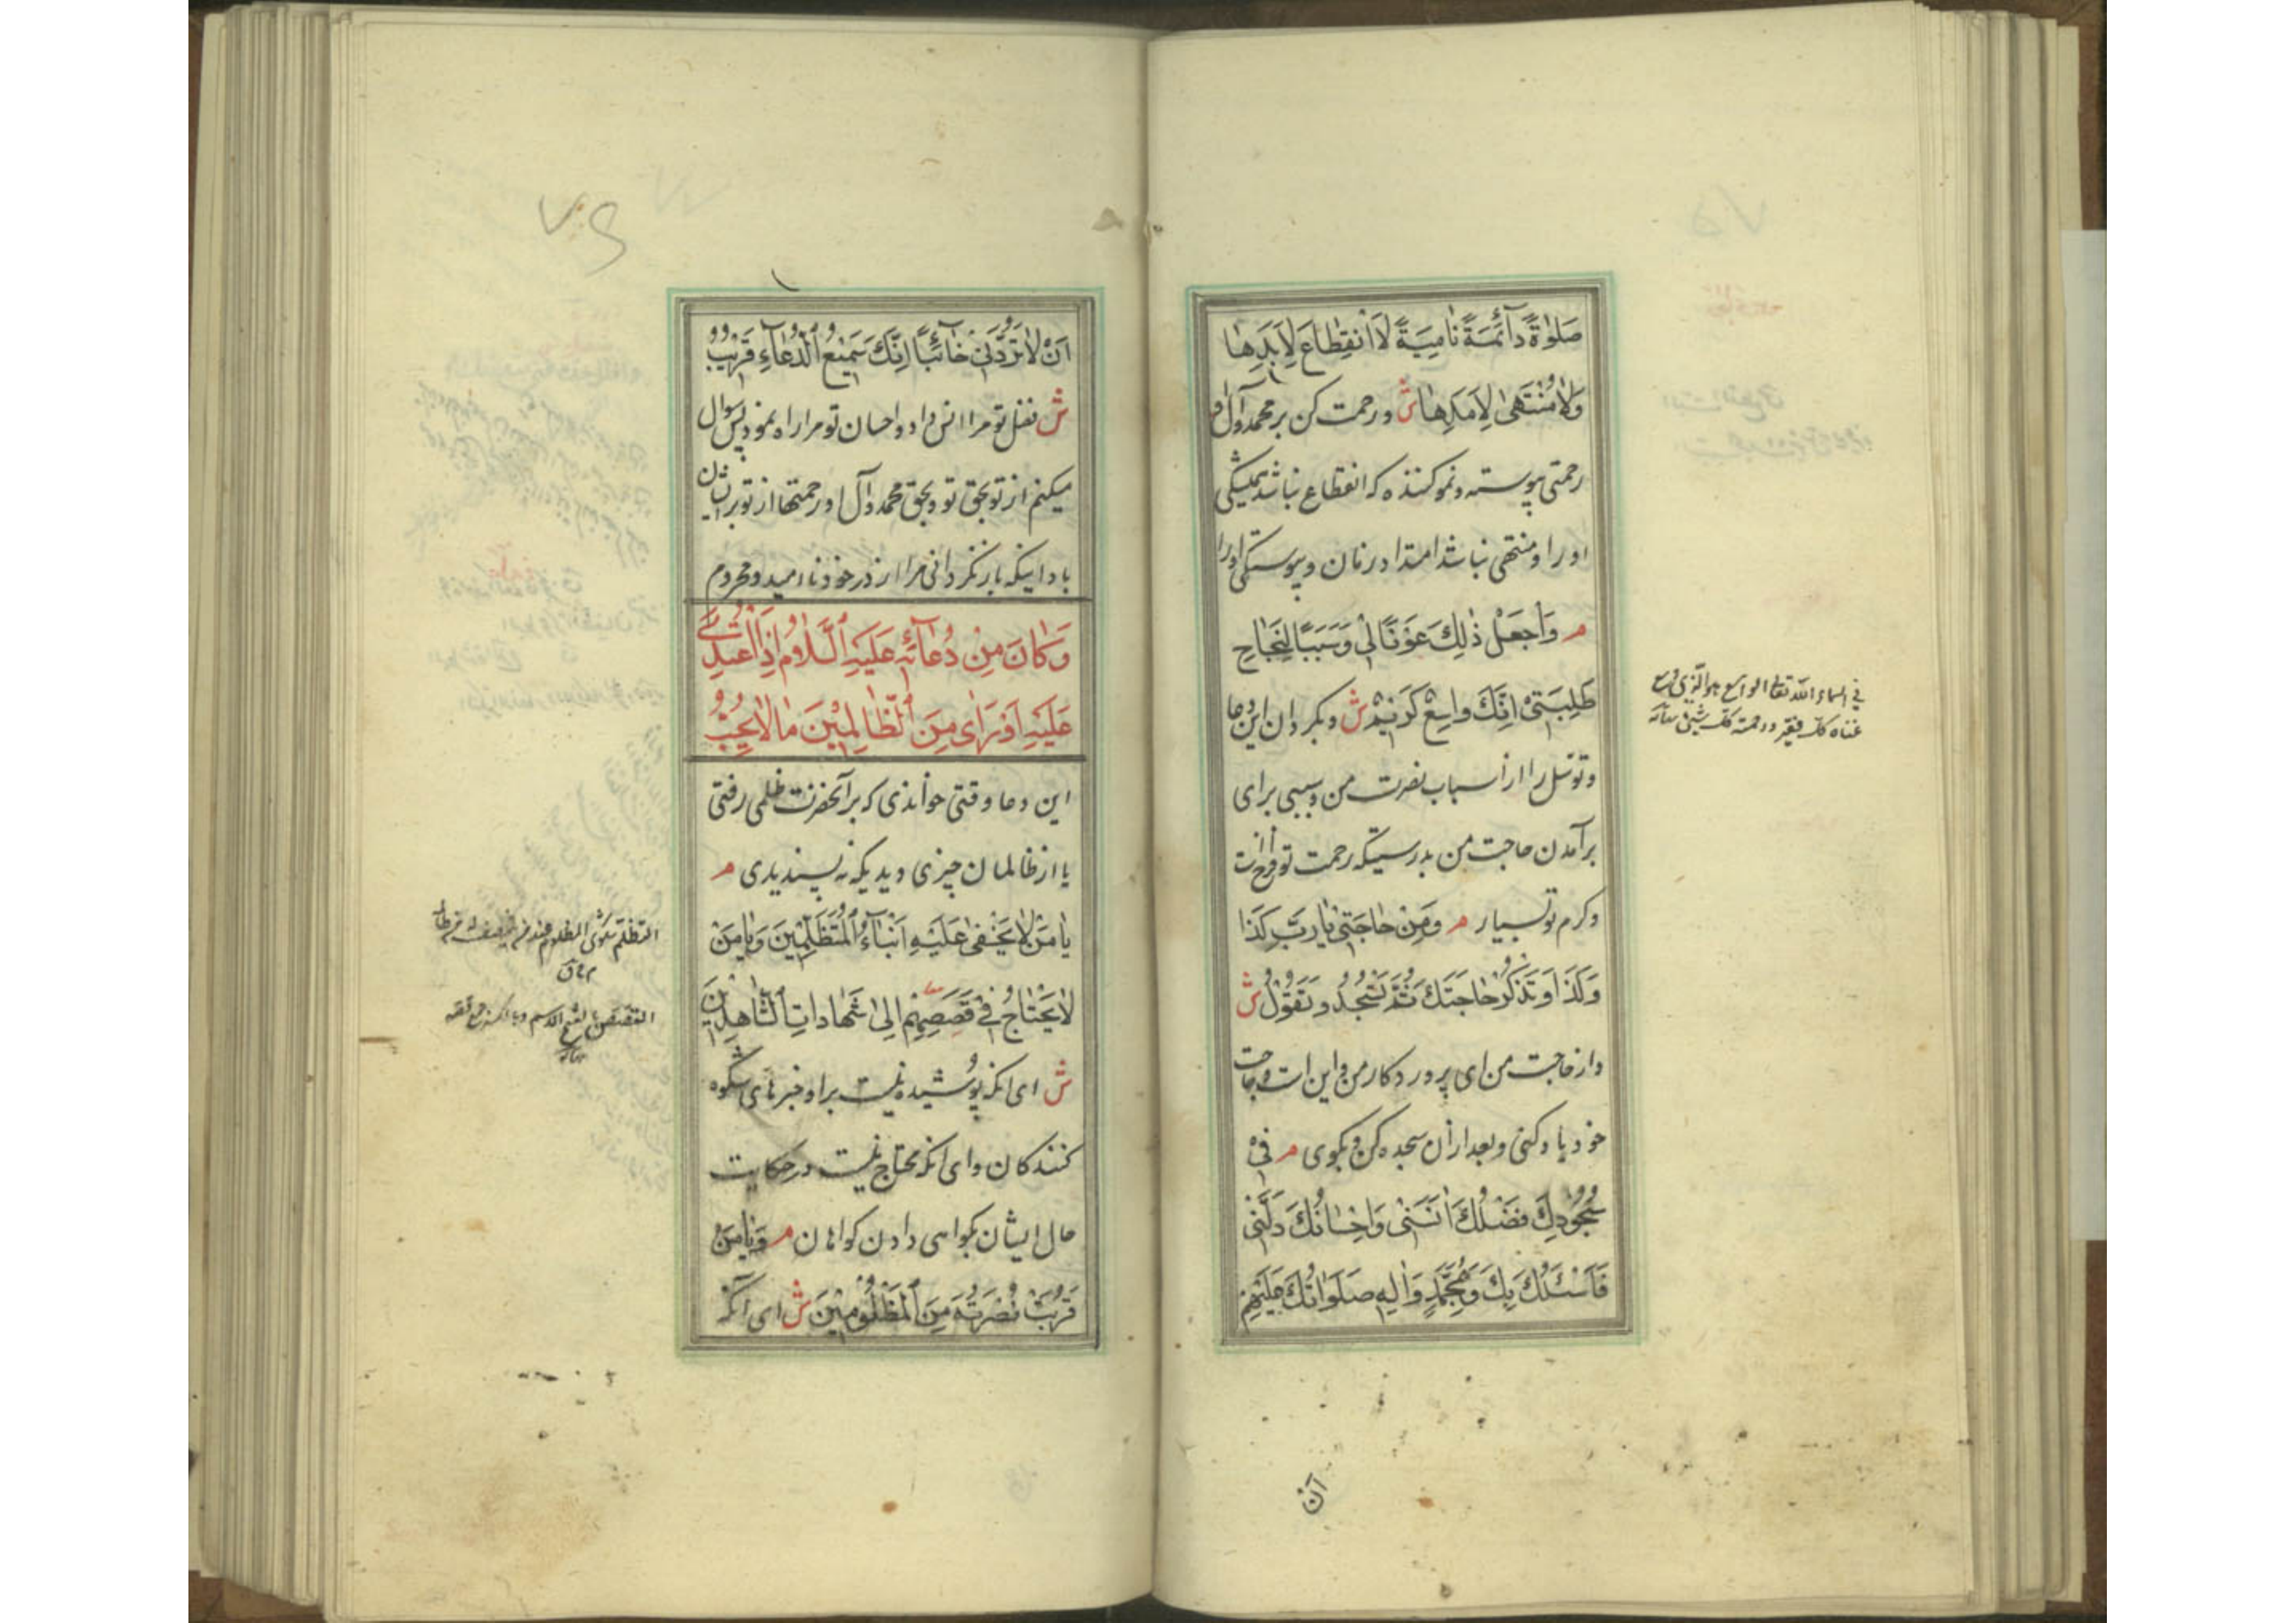 صَلٰوةً دٰآئِمَةً نٰامِيَةً لَا انْقِطٰاعَ لِاَبَدِهٰا
وَلٰا مُنْتَهىٰ لِاَمَدِهٰا ش ورحمت کن بر محمد وآل او
رحمتی پیوسته ونمو کننده که انقطاع نباشد همیشگی
او را ومنتهی نباشد امتداد زمان وپیوستگی او را
م وَاجْعَلْ ذٰلِكَ عَوْنًا لِيْ وَسَبَبًا لِنَجٰاحِ
طَلِبَتِيْ اِنَّكَ وٰاسِعٌ كَرِيْمٌ ش وبکردان این دعا
وتوسل را از اسباب نصرت من وسببی برای
برآمدن حاجت من بدرستیکه رحمت تو فراخ است
وکرم تو بسیار م وَمِنْ حٰاجَتِيْ يٰا رَبِّ كَذَا
وَكَذَا وَتَذْكُرُ حٰاجَتَكَ ثُمَّ تَسْجُدُ وَتَقُوْلُ ش
واز حاجت من ای پروردکار من این است وحاجت
خود یاد کنی وبعد ازان سجده کن وبکوی م فِيْ
سُجُوْدِكَ فَضْلُكَ اٰنَسَنِيْ وَاِحْسٰانُكَ دَلَّنِيْ
فَاَسْئَلُكَ بِكَ وَبِمُحَمَّدٍ وَاٰلِهِ صَلَوٰاتُكَ عَلَيْهِمْ
في اسماء الله تعالی الواسع هو الذي وسع
غناه كل فقير ورحمته كل شيئ
آن
٧٠٦
اَنْ لٰا تَرُدَّنِيْ خٰآئِبًا اِنَّكَ سَمِيْعُ الدُّعٰآءِ قَرِيْبٌ
ش فضل تو مرا انس داد واحسان تو مرا راه نمود پس سوال
میکنم از تو بحق تو وبحق محمد وآل او رحمتها از تو بر ایشان
باد اینکه باز نکردانی مرا از در خود ناامید ومحروم
وَكٰانَ مِنْ دُعٰآئِهِ عَلَيْهِ السَّلٰامُ اِذَا اعْتُدِيَ
عَلَيْهِ اَوْ رَاىٰ مِنَ الظّٰالِمِيْنَ مٰا لٰا يُحِبُّ
این دعا وقتی خواندی که بر آنحضرت ظلمی رفتی
یا از ظالمان چیزی دیدی که نه پسندیدی م
يٰا مَنْ لٰا يَخْفىٰ عَلَيْهِ اَنْبٰآءُ الْمُتَظَلِّمِيْنَ وَيٰا مَنْ
لٰا يَحْتٰاجُ فِيْ قَصَصِهِمْ اِلىٰ شَهٰادٰاتِ الشّٰاهِدِيْنَ
ش ای انکه پوشیده نیست بر او خبرهای شکوه
کنندکان وای انکه محتاج نیست در حکایت
حال ایشان بکواهی دادن کواهان م وَيٰا مَنْ
قَرُبَتْ نُصْرَتُهُ مِنَ الْمَظْلُوْمِيْنَ ش ای انکه
التظلم شکوی المظلوم عند من
القصص بالفتح الاسم وبالكسر جمع قصه